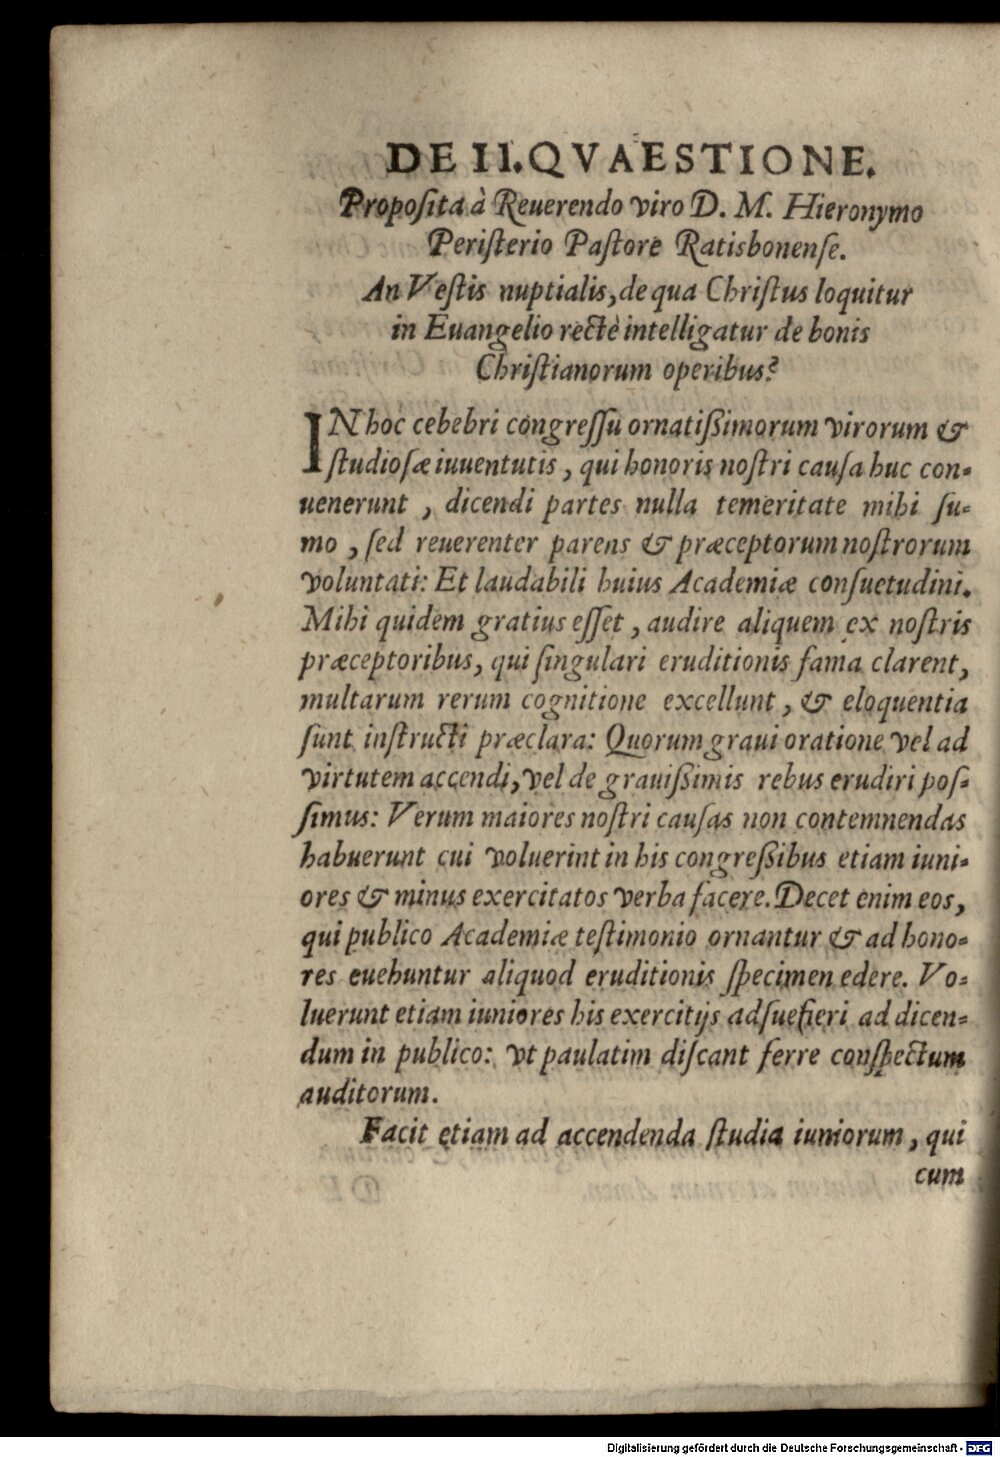 DE II. QVAESTIONE.
Proposita à Reuerendo viro D. M. Hieronymo
Peristerio Pastore Ratisbonense.
An Vestis nuptialis, de qua Christus loquitur
in Euangelio rectè intelligatur de bonis
Christianorum operibus?
IN hoc cebebri congressu ornatißimorum virorum &
studiosæ iuuentutis, qui honoris nostri causa huc con-
uenerunt, dicendi partes nulla temeritate mihi su-
mo, sed reuerenter parens & præceptorum nostrorum
voluntati: Et laudabili huius Academiæ consuetudini.
Mihi quidem gratius esset, audire aliquem ex nostris
præceptoribus, qui singulari eruditionis fama clarent,
multarum rerum cognitione excellunt, & eloquentia
sunt instructi præclara: Quorum graui oratione vel ad
virtutem accendi, vel de grauißimis rebus erudiri pos-
simus: Verum maiores nostri causas non contemnendas
habuerunt cui voluerint in his congreßibus etiam iuni-
ores & minus exercitatos verba facere. Decet enim eos,
qui publico Academiæ testimonio ornantur & ad hono-
res euehuntur aliquod eruditionis specimen edere. Vo-
luerunt etiam iuniores his exercitijs adsuefieri ad dicen-
dum in publico: vt paulatim discant ferre conspectum
auditorum.
Facit etiam ad accendenda studia iuniorum, qui
cum
Digitalisierung gefördert durch die Deutsche Forschungsgemeinschaft - DFG